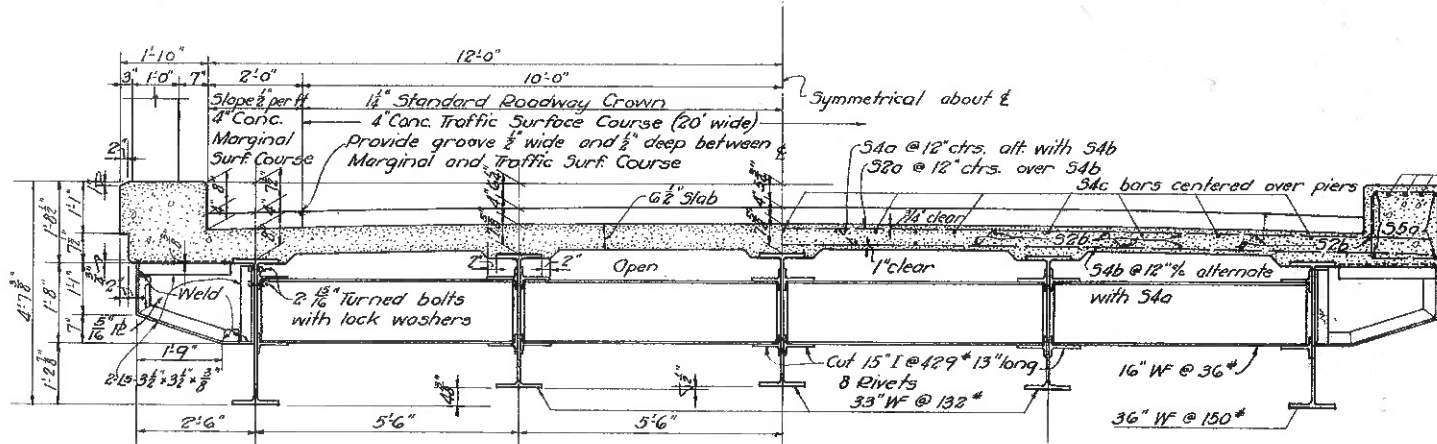 1'-10"
12'-0"
3" 1'-0" 7"
2'-0"
10'-0"
Slope ½" per ft
1¼" Standard Roadway Crown
Symmetrical about ℄
4" Conc.
Marginal
Surf. Course
4" Conc. Traffic Surface Course (20' wide)
Provide groove ½" wide and ½" deep between
Marginal and Traffic Surf. Course
℄
S4a @ 12" ctrs. alt. with S4b
S2a @ 12" ctrs. over S4b
S4c bars centered over piers
2"
6½" Slab
1'-1"
1'-8½"
7½"
S5a
S2b
S2b
2"
2"
Open
1" clear
S4b @ 12" % alternate
with S4a
Weld
2-15/16" Turned bolts
with lock washers
4'-7⅜"
1'-1"
1'-8"
7"
1'-9"
1'-2⅞"
2-Ls-3½"×3½"×⅜"
Cut 15" I @ 42.9# 13" long
8 Rivets
33" WF @ 132#
16" WF @ 36#
36" WF @ 150#
2'-6"
5'-6"
5'-6"